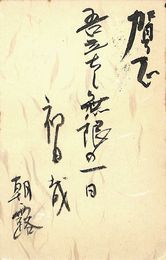 賀正
吾立ちし無限の一日
初日哉
朝露